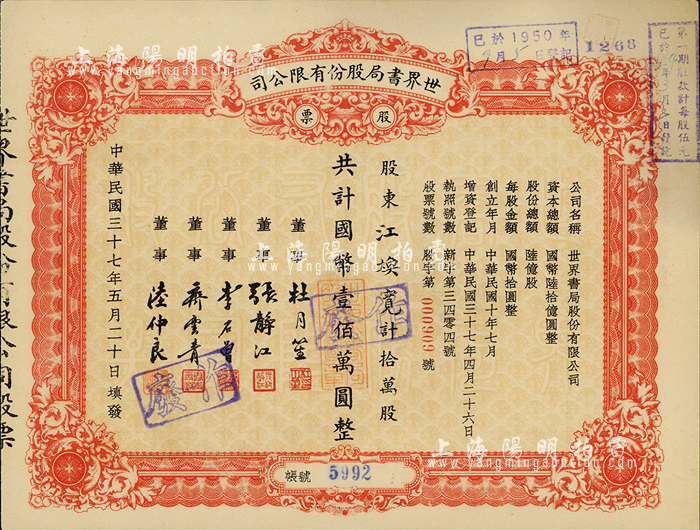 世界書局股份有限公司
股票
公司名稱 世界書局股份有限公司
資本總額 國幣陸拾億圓整
股份總額 陸億股
每股金額 國幣拾圓整
創立年月 中華民國十年七月
增資登記 中華民國三十七年四月二十六日
執照號數 新字第三四零四號
股票號數 股字第 號
股東江煥寬計拾萬股
共計國幣壹佰萬圓整
董事 杜月笙
董事 張靜江
董事 李石曾
董事 齊雲青
董事 陸仲良
中華民國三十七年五月二十日填發
帳號 5992
已於1950年
月 日登記
1268
第一期股款計每股伍元
作廢
作廢
世界書局股份有限公司股票
上海陽明拍賣
www.yangmingauction.com
上海陽明拍賣
www.yangmingauction.com
上海陽明拍賣
www.yangmingauction.com
上海陽明拍賣
www.yangmingauction.com
上海陽明拍賣
www.yangmingauction.com